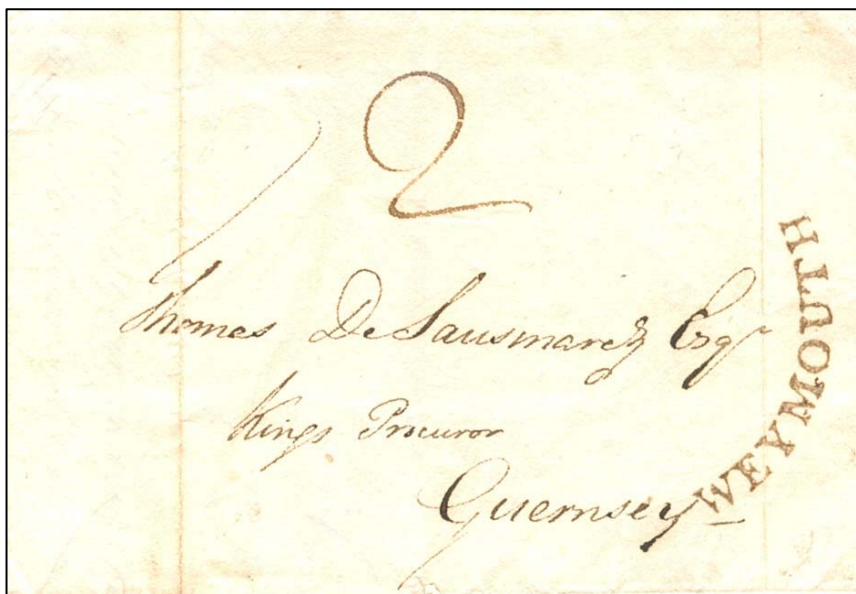 2
Thomas De Sausmarez Esqr
Kings Procuror
Guernsey
WEYMOUTH